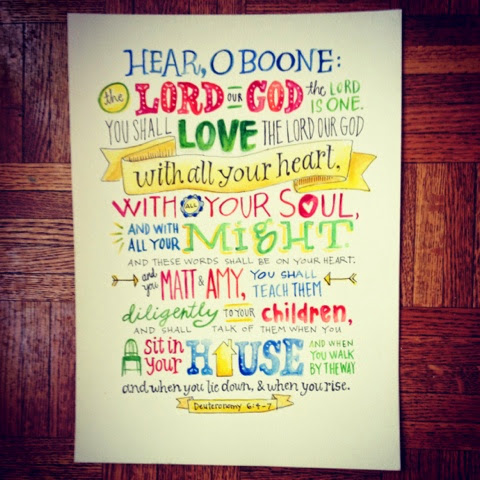 HEAR, O BOONE:
the LORD OUR GOD the LORD IS ONE.
YOU SHALL LOVE THE LORD OUR GOD
with all your heart,
WITH ALL YOUR SOUL,
AND WITH ALL YOUR MIGHT.
AND THESE WORDS SHALL BE ON YOUR HEART.
and you MATT & AMY, YOU SHALL TEACH THEM
diligently TO YOUR children,
AND SHALL TALK OF THEM WHEN YOU
sit in your HOUSE AND WHEN YOU WALK BY THE WAY
and when you lie down, & when you rise.
Deuteronomy 6:4-7